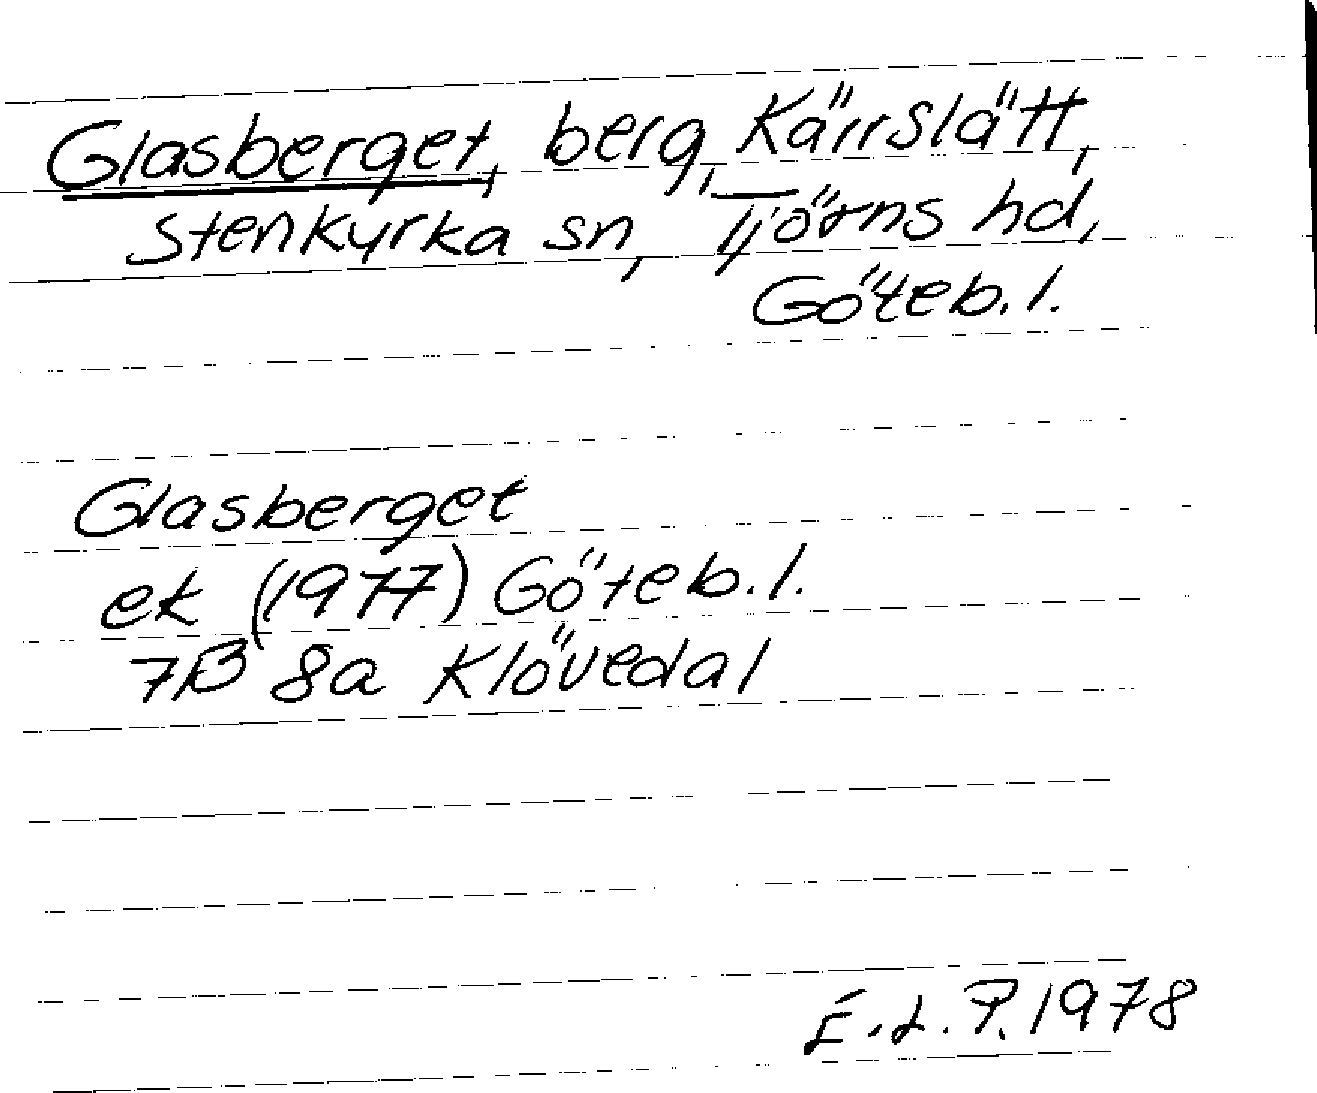 Glasberget, berg, Kärrslätt,
Stenkyrka sn, Tjörns hd,
Göteb. l.
Glasberget
ek (1977) Göteb. l.
7B 8a Klövedal
E.L.P. 1978